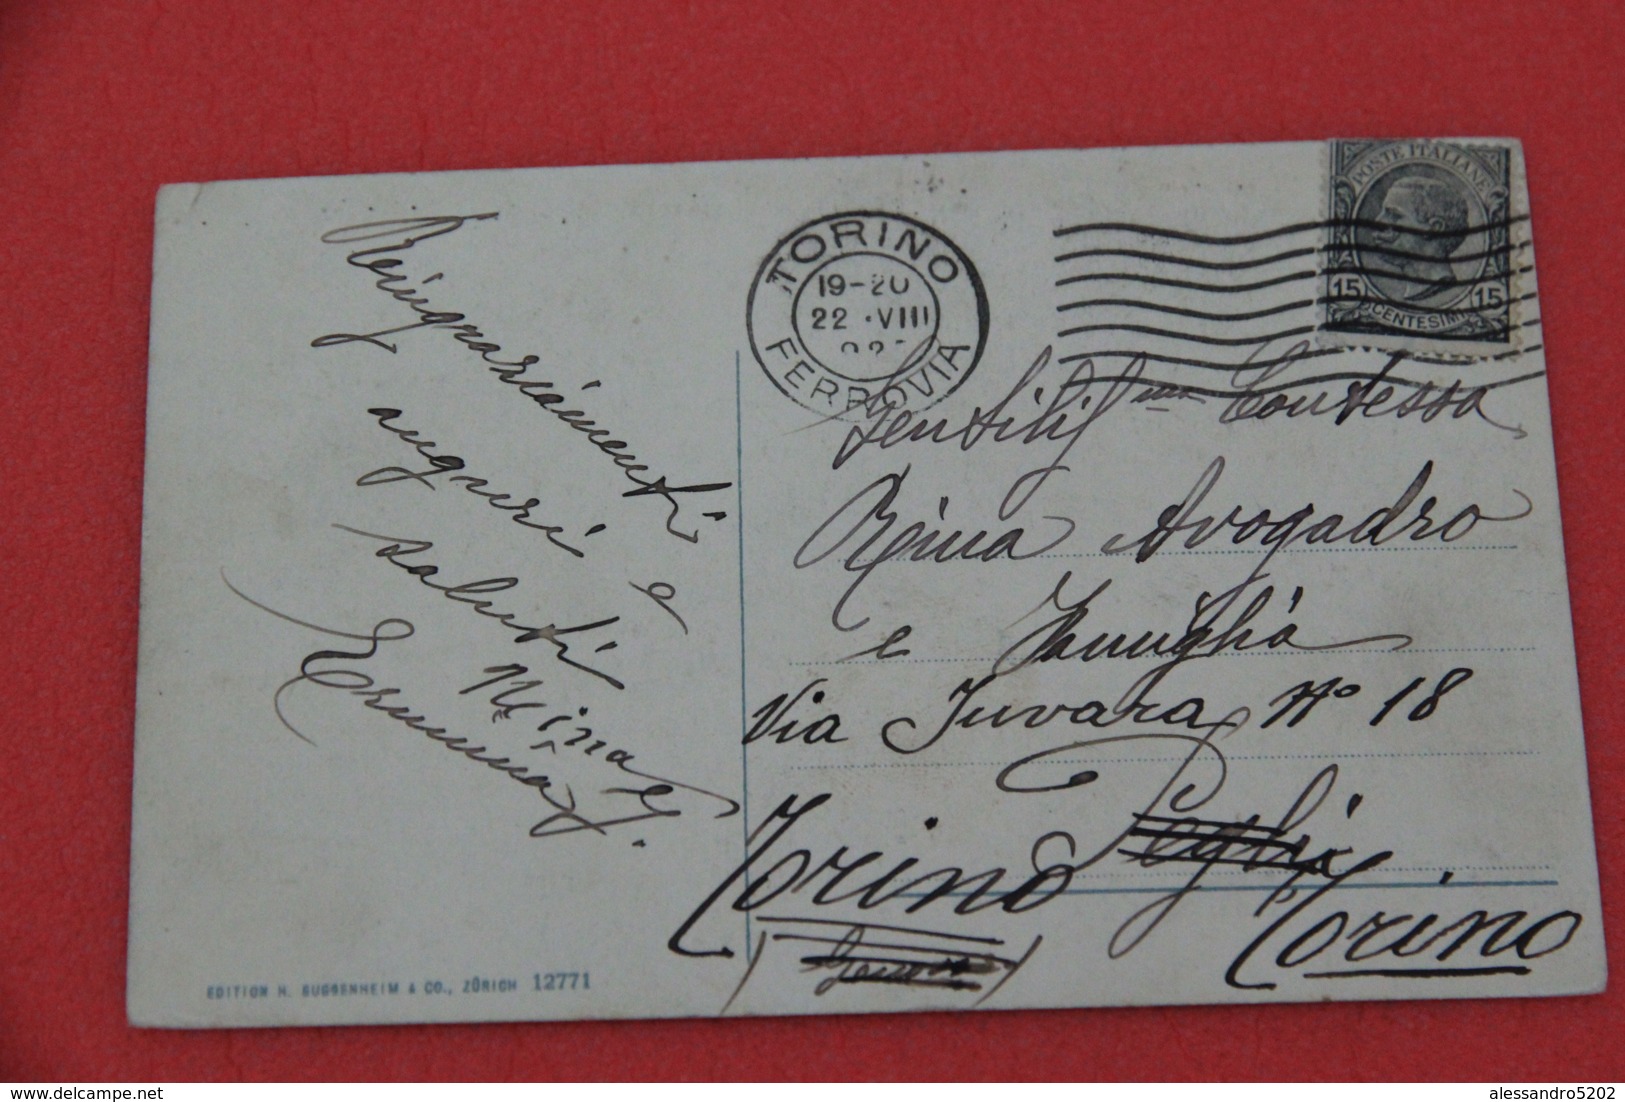 Ringraziamenti
auguri e
saluti
Mina e
Erminia
EDITION H. GUGGENHEIM & CO., ZÜRICH 12771
TORINO
19-20
22 ·VIII
FERROVIA
POSTE ITALIANE
15 15
CENTESIMI
Gentilis ma Contessa
Rina Avogadro
e Famiglia
Via Juvara N° 18
Peglii
Torino Torino
(Genova)
delcampe.net
alessandro5202